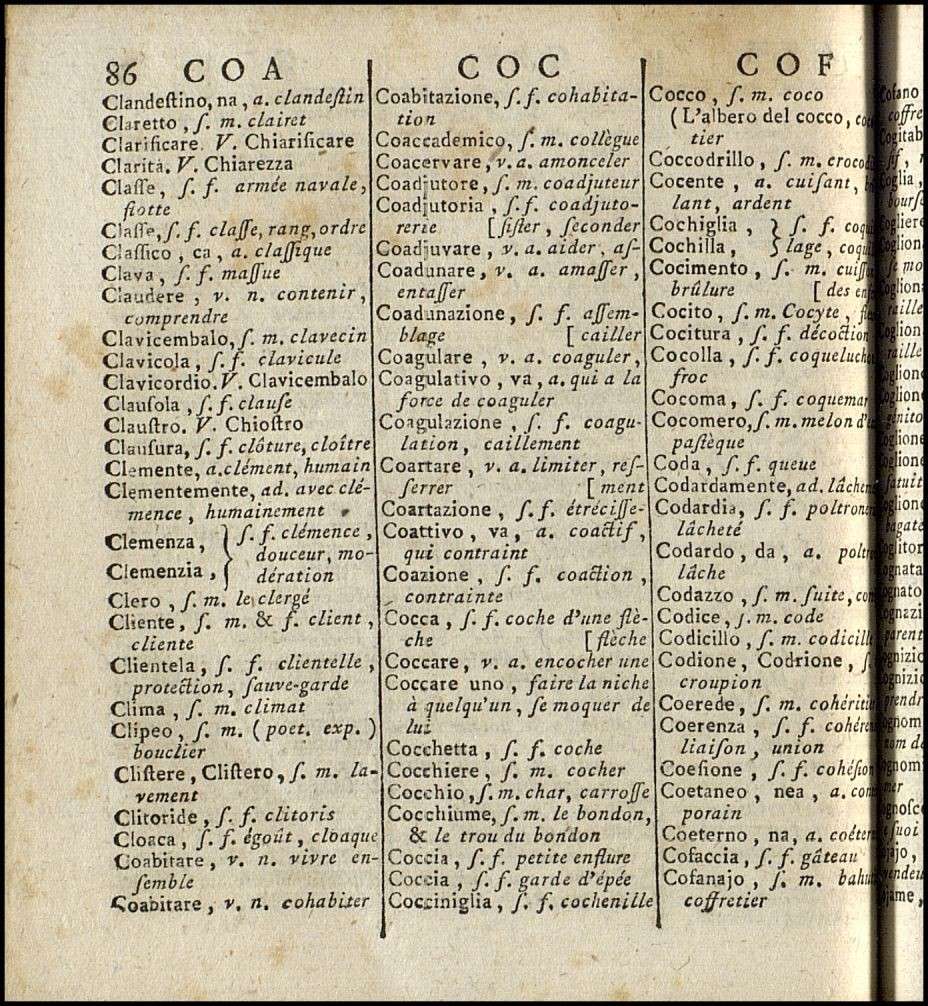 86 C O A
Clandeſtino, na, a. clandeſtin
Claretto, ſ. m. clairet
Clarificare. V. Chiarificare
Clarità. V. Chiarezza
Claſſe, ſ. f. armée navale,
flotte
Claſſe, ſ. f. claſſe, rang, ordre
Claſſico, ca, a. claſſique
Clava, ſ. f. maſſue
Claudere, v. n. contenir,
comprendre
Clavicembalo, ſ. m. clavecin
Clavicola, ſ. f. clavicule
Clavicordio. V. Clavicembalo
Clauſola, ſ. f. clauſe
Clauſtro. V. Chioſtro
Clauſura, ſ. f. clôture, cloître
Clemente, a. clément, humain
Clementemente, ad. avec clé-
mence, humainement
Clemenza, } ſ. f. clémence,
douceur, mo-
Clemenzia, dération
Clero, ſ. m. le clergé
Cliente, ſ. m. & f. client,
cliente
Clientela, ſ. f. clientelle,
protection, ſauve-garde
Clima, ſ. m. climat
Clipeo, ſ. m. (poet. exp.)
bouclier
Cliſtere, Cliſtero, ſ. m. la-
vement
Clitoride, ſ. f. clitoris
Cloaca, ſ. f. égoût, cloaque
Coabitare, v. n. vivre en-
ſemble
Coabitare, v. n. cohabiter
C O C
Coabitazione, ſ. f. cohabita-
tion
Coaccademico, ſ. m. collègue
Coacervare, v. a. amonceler
Coadjutore, ſ. m. coadjuteur
Coadjutoria, ſ. f. coadjuto-
rerie [ſiſter, ſeconder
Coadjuvare, v. a. aider, aſ-
Coadunare, v. a. amaſſer,
entaſſer
Coadunazione, ſ. f. aſſem-
blage [cailler
Coagulare, v. a. coaguler,
Coagulativo, va, a. qui a la
force de coaguler
Coagulazione, ſ. f. coagu-
lation, caillement
Coartare, v. a. limiter, reſ-
ſerrer [ment
Coartazione, ſ. f. étréciſſe-
Coattivo, va, a. coactif,
qui contraint
Coazione, ſ. f. coaction,
contrainte
Cocca, ſ. f. coche d'une flè-
che [flèche
Coccare, v. a. encocher une
Coccare uno, faire la niche
à quelqu'un, ſe moquer de
lui
Cocchetta, ſ. f. coche
Cocchiere, ſ. m. cocher
Cocchio, ſ. m. char, carroſſe
Cocchiume, ſ. m. le bondon,
& le trou du bondon
Coccia, ſ. f. petite enflure
Coccia, ſ. f. garde d'épée
Cocciniglia, ſ. f. cochenille
C O F
Cocco, ſ. m. coco
(L'albero del cocco,
tier
Coccodrillo, ſ. m.
Cocente, a. cuiſant,
lant, ardent
Cochiglia, } ſ. f.
Cochilla, lage,
Cocimento, ſ. m.
brûlure [des
Cocito, ſ. m. Cocyte,
Cocitura, ſ. f. décoction
Cocolla, ſ. f.
froc
Cocoma, ſ. f. coquemar
Cocomero, ſ. m. melon
paſtèque
Coda, ſ. f. queue
Codardamente, ad.
Codardia, ſ. f.
lâcheté
Codardo, da, a.
lâche
Codazzo, ſ. m. ſuite,
Codice, ſ. m. code
Codicillo, ſ. m.
Codione, Codrione,
croupion
Coerede, ſ. m.
Coerenza, ſ. f.
liaiſon, union
Coeſione, ſ. f. cohéſion
Coetaneo, nea, a.
porain
Coeterno, na, a.
Cofaccia, ſ. f. gâteau
Cofanajo, ſ. m.
coffretier